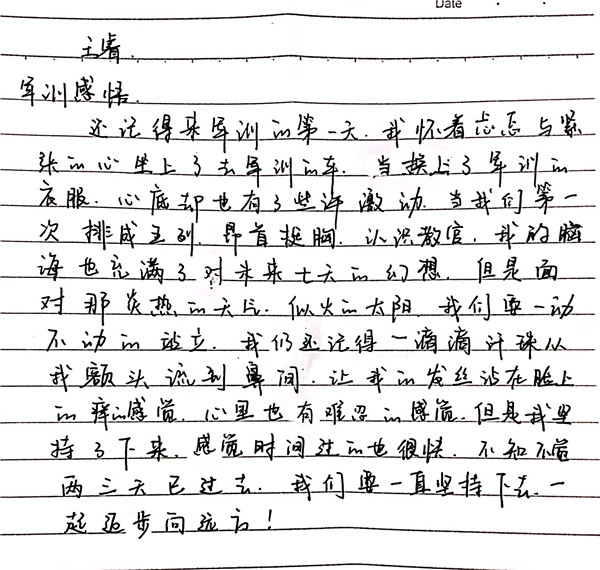 Date
王睿.
军训感悟.
还记得来军训的第一天.我怀着忐忑与紧
张的心坐上了去军训的车.当换上了军训的
衣服.心底却也有了些许激动.当我们第一
次排成五列.昂首挺胸.认识教官.我的脑
海也充满了对未来七天的幻想.但是面
对那炎热的天气.似火的太阳.我们要一动
不动的站立.我们还记得一滴滴汗珠从
我额头流到鼻间.让我的发丝沾在脸上
的痒的感觉.心里也有难忍的感觉.但是我坚
持了下来.感觉时间过的也很快.不知不觉
两三天已过去.我们要一直坚持下去.一
起迈步向远方!